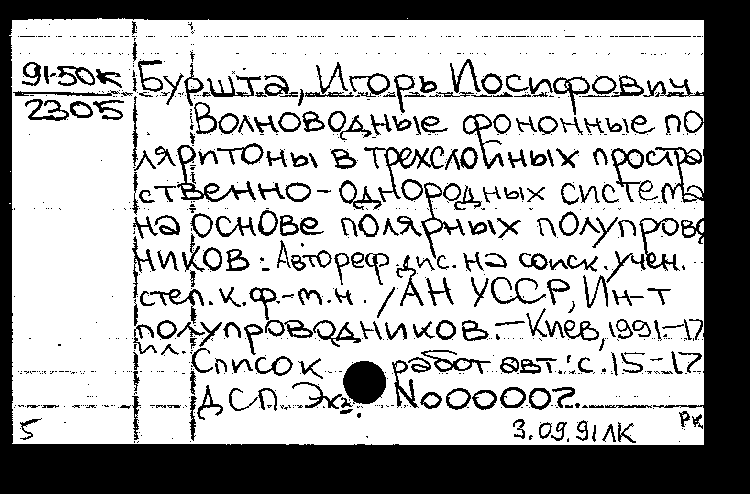 91-50К Буршта, Игорь Иосифович
2305
Волноводные фононные по
ляритоны в трехслойных простра
ственно-однородных система
на основе полярных полупрово
ников: Автореф. дис. на соиск. учен.
степ. к.ф.-м.н. / АН УССР, Ин-т
полупроводников.- Киев, 1991-17
ил.
Список работ авт.: с. 15-17
ДСП. Экз. №000007.
5 3.09.91ЛК РК